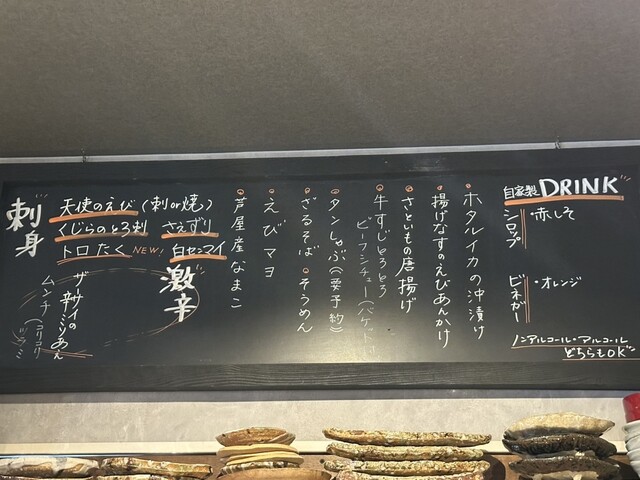 自家製DRINK
シロップ
・赤しそ
ビネガー
・オレンジ
ノンアルコール・アルコール
どちらもOK
・ホタルイカの沖漬け
・揚げなすのえびあんかけ
・さといもの唐揚げ
・牛すじとろとろ
ビーフシチュー(バゲット付)
・タンしゃぶ(要予約)
・ざるそば・そうめん
・えびマヨ
・芦屋産なまこ
刺身
天使のえび(刺or焼)
くじらのとろ刺 さえずり
トロたく NEW! 白セマイ
激辛
ザーサイの
辛ミソあえ
ムンチ(コリコリ